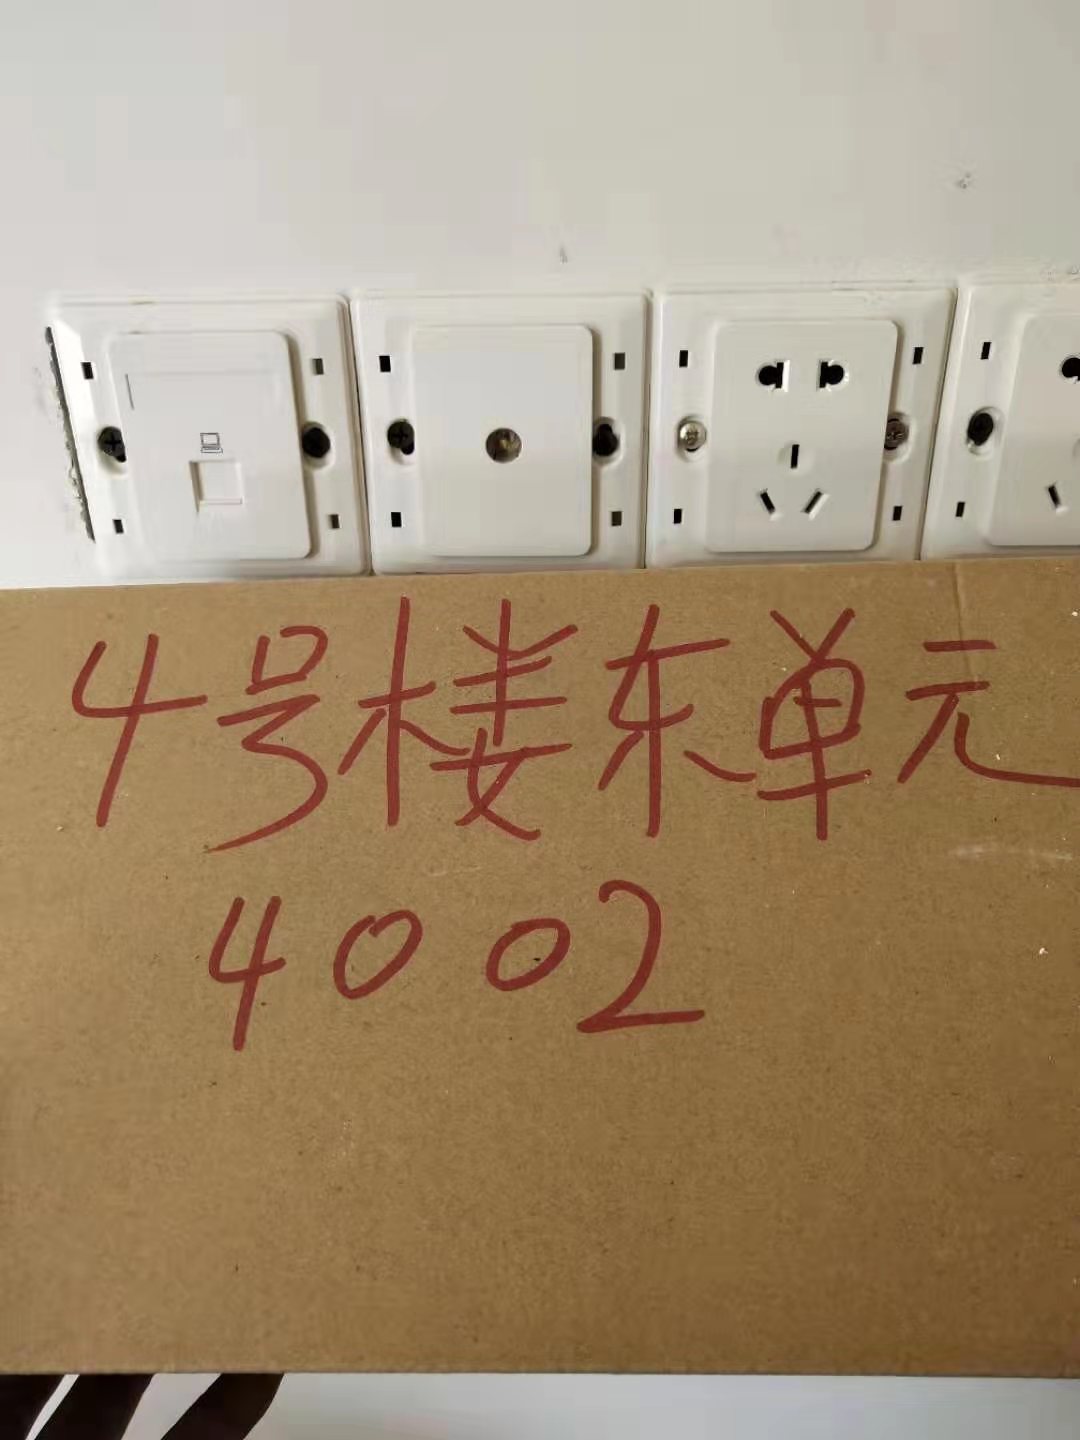 4号楼东单元
4002